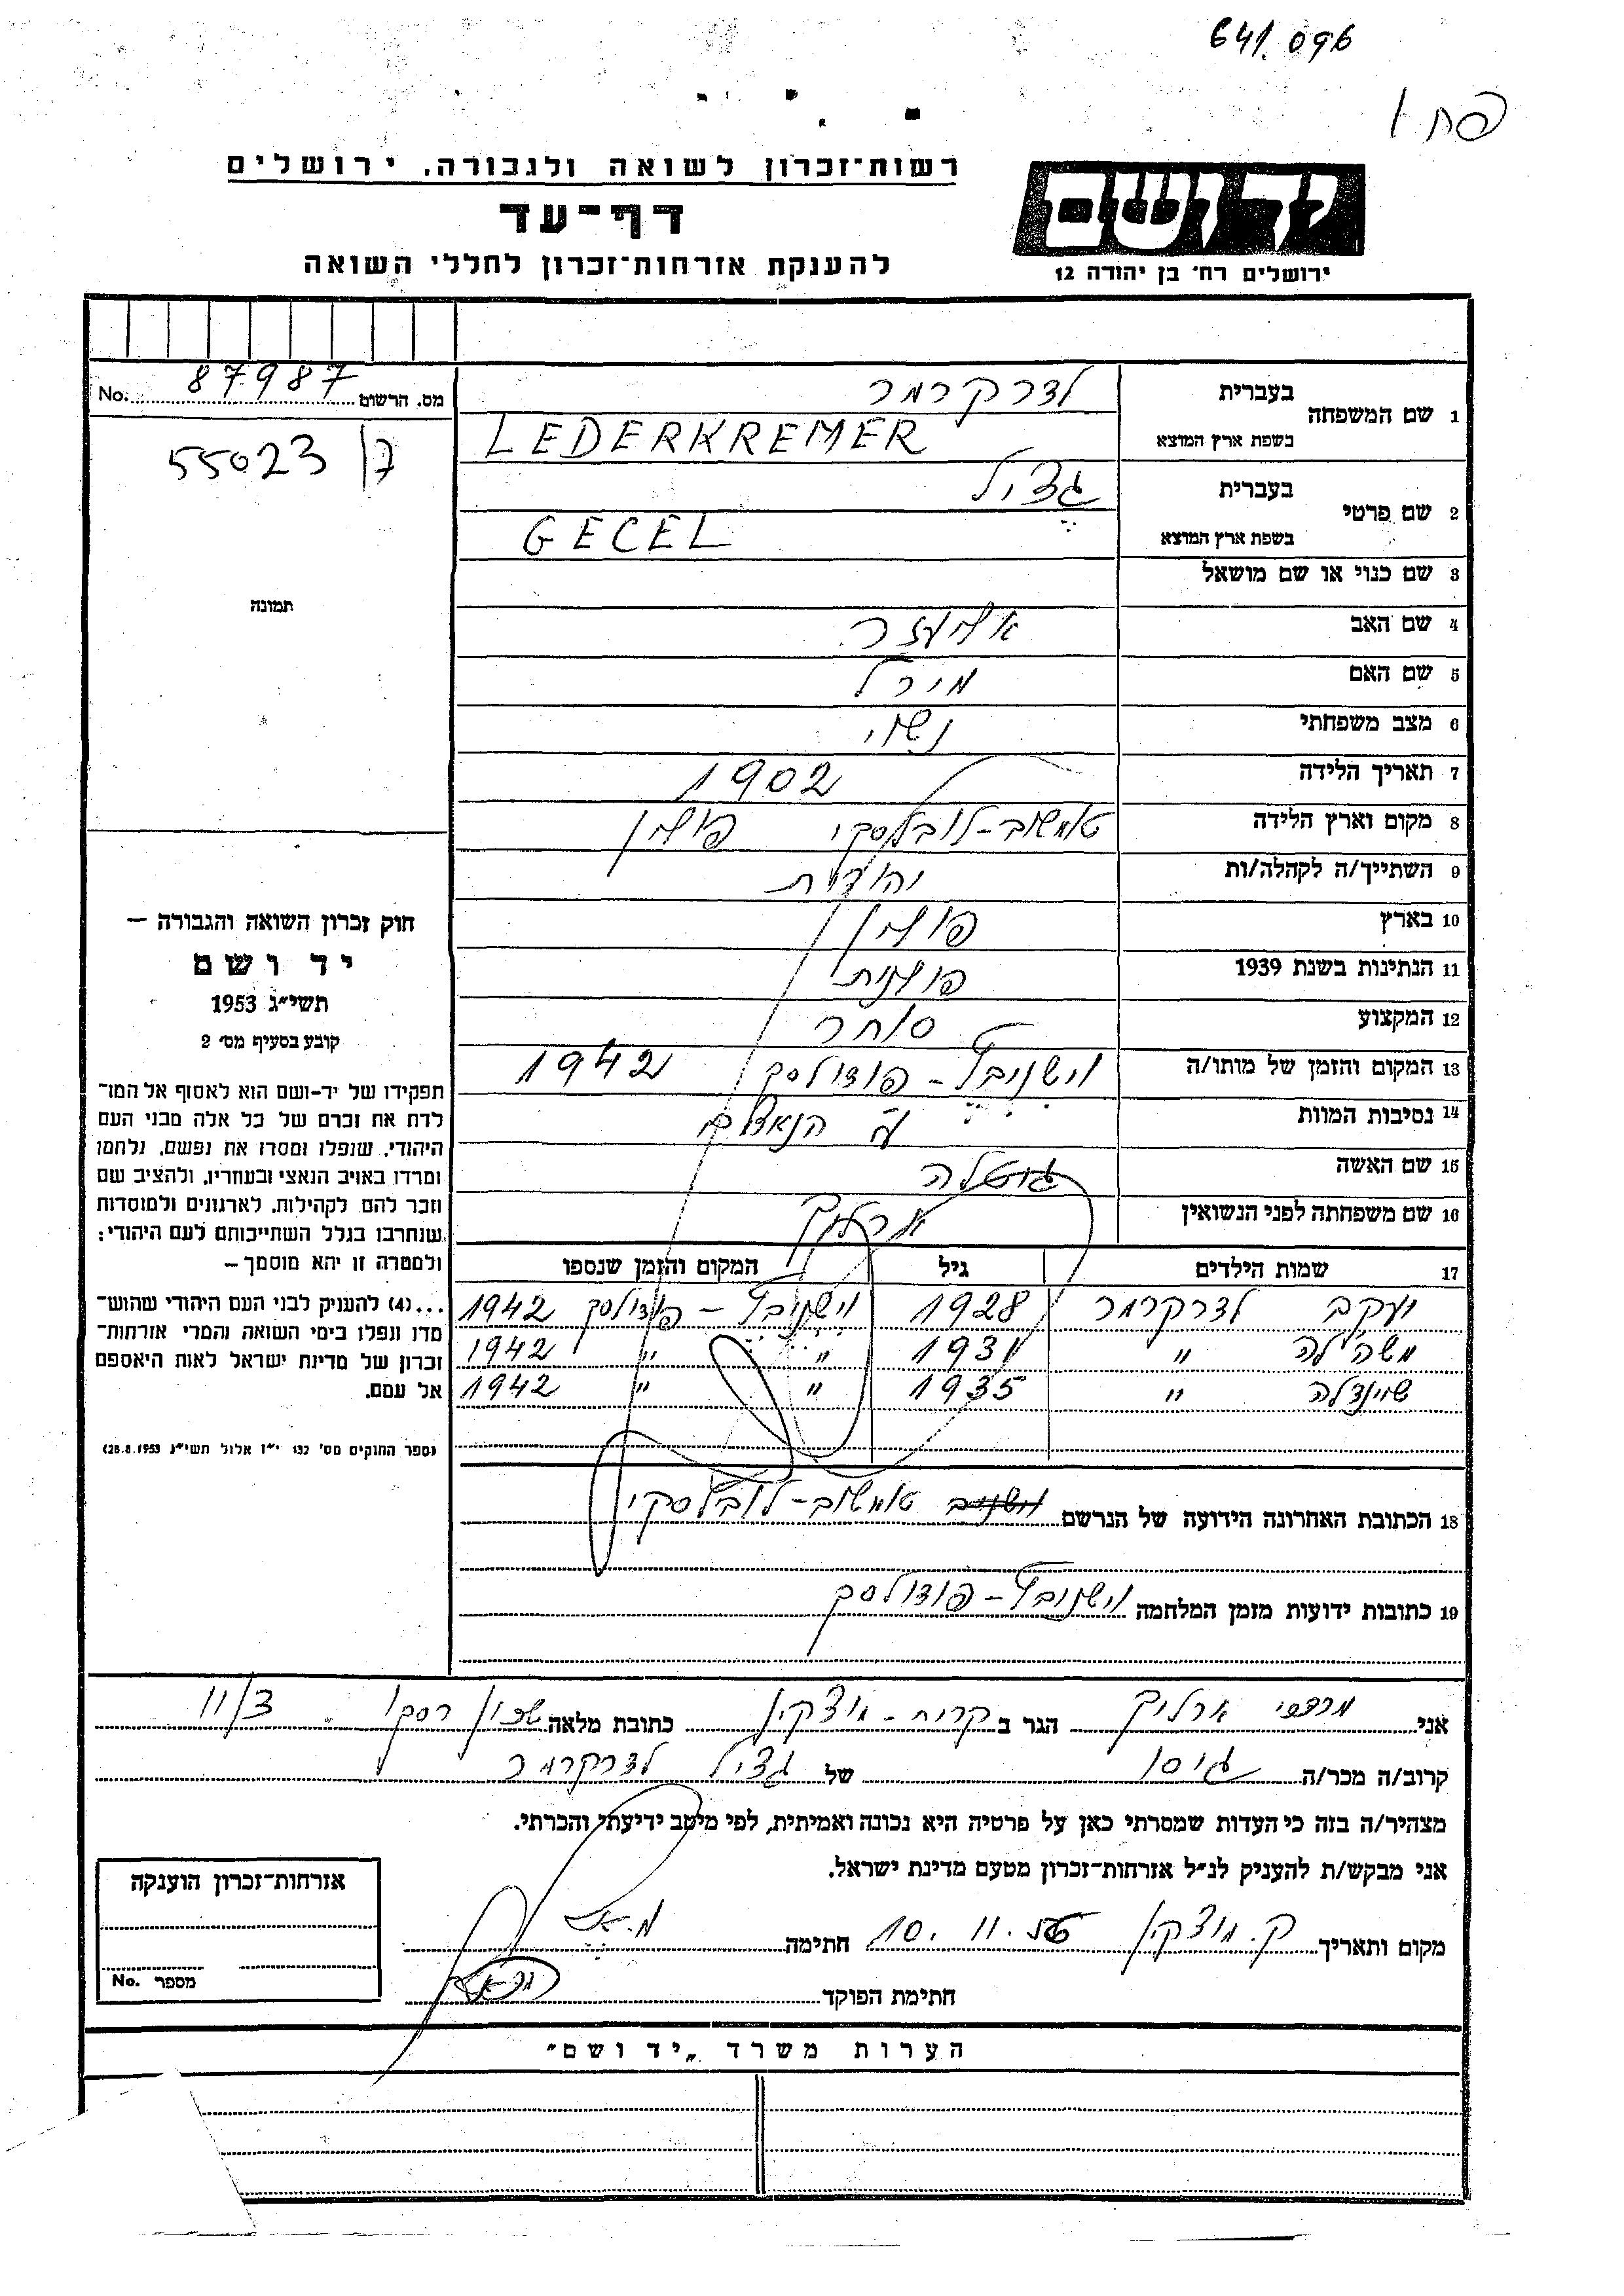 641.096
רשות־זכרון לשואה ולגבורה, ירושלים
דף־עד
להענקת אזרחות־זכרון לחללי השואה
יד ושם
ירושלים רח׳ בן יהודה 12
מס. הרשום 87987 No.
55023
תמונה
חוק זכרון השואה והגבורה —
יד ושם
תשי״ג 1953
קובע בסעיף מס׳ 2
תפקידו של יד-ושם הוא לאסוף אל המו־
לדת את זכרם של כל אלה מבני העם
היהודי, שנפלו ומסרו את נפשם, נלחמו
ומרדו באויב הנאצי ובעוזריו, ולהציב שם
וזכר להם לקהילות, לארגונים ולמוסדות
שנחרבו בגלל השתייכותם לעם היהודי:
ולמטרה זו יהא מוסמך —
...(4) להעניק לבני העם היהודי שהוש־
מדו ונפלו בימי השואה והמרי אזרחות־
זכרון של מדינת ישראל לאות היאספם
אל עמם.
(ספר החוקים מס׳ 132 י״ז אלול תשי״ג 28.8.1953)
1 שם המשפחה בעברית לדרקרמר
בשפת ארץ המוצא LEDERKREMER
2 שם פרטי בעברית גציל
בשפת ארץ המוצא GECEL
3 שם כנוי או שם מושאל
4 שם האב אליעזר
5 שם האם מירל
6 מצב משפחתי נשוי
7 תאריך הלידה 1902
8 מקום וארץ הלידה טומשוב-לובלסקי פולין
9 השתייך/ה לקהלה/ות יהודית
10 בארץ פולין
11 הנתינות בשנת 1939 פולנית
12 המקצוע סוחר
13 המקום והזמן של מותו/ה וישניבץ - פודולסק 1942
14 נסיבות המוות ע״י הנאצים
15 שם האשה גוטלה
16 שם משפחתה לפני הנשואין ארליך
17 שמות הילדים גיל המקום והזמן שנספו
יעקב לדרקרמר 1928 וישניבץ - פודולסק 1942
משה׳לה " 1931 " " 1942
שיינדלה " 1935 " " 1942
18 הכתובת האחרונה הידועה של הנרשם טומשוב-לובלסקי
19 כתובות ידועות מזמן המלחמה וישניבץ - פודולסק
אני מרדכי ארליך הגר ב קרית-מוצקין כתובת מלאה שכון רסקו 11/3
קרוב/ה מכר/ה גיסו של גציל לדרקרמר
מצהיר/ה בזה כי העדות שמסרתי כאן על פרטיה היא נכונה ואמיתית, לפי מיטב ידיעתי והכרתי.
אני מבקש/ת להעניק לנ״ל אזרחות־זכרון מטעם מדינת ישראל.
מקום ותאריך ק. מוצקין 10. 11. חתימה
חתימת הפוקד
אזרחות־זכרון הוענקה
מספר No.
הערות משרד „יד ושם״